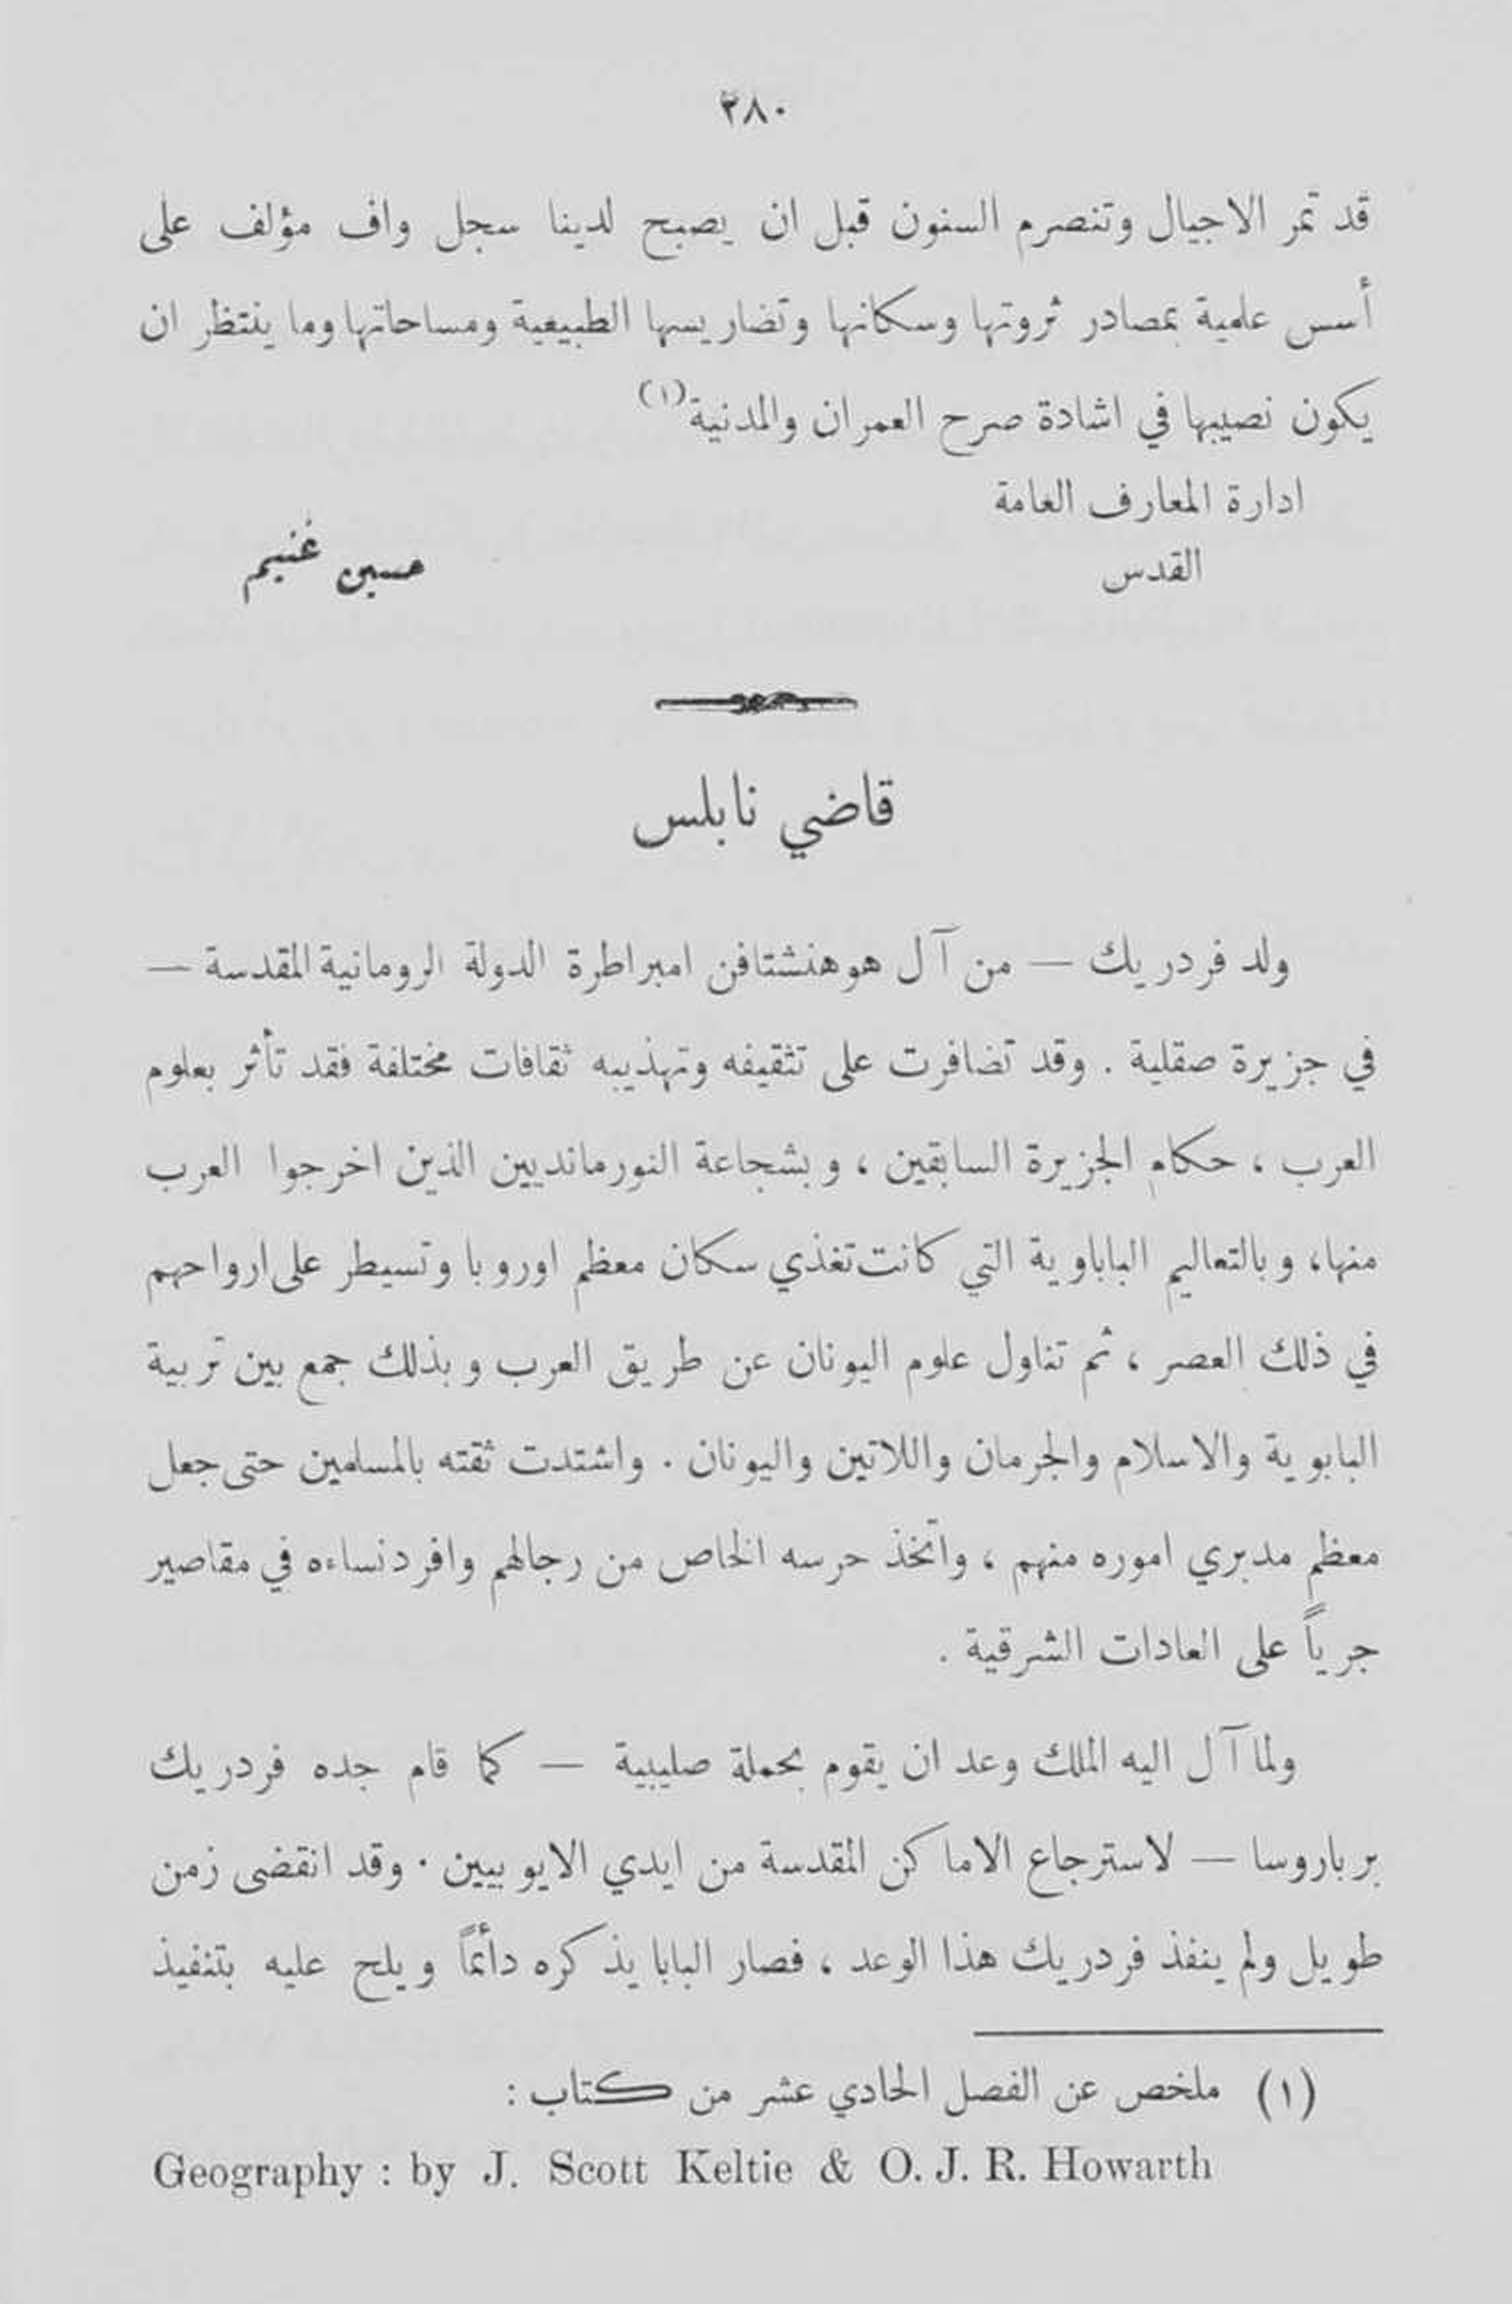 ٢٨٠
قد تمر الاجيال وتنصرم السنون قبل ان يصبح لدينا سجل واف مؤلف على
أسس علمية بمصادر ثروتها وسكانها وتضاريسها الطبيعية ومساحاتها وما ينتظر ان
يكون نصيبها في اشادة صرح العمران والمدنية(١)
ادارة المعارف العامة
القدس
حسين غنيم
قاضي نابلس
ولد فردريك — من آل هوهنشتافن امبراطرة الدولة الرومانية المقدسة —
في جزيرة صقلية . وقد تضافرت على تثقيفه وتهذيبه ثقافات مختلفة فقد تأثر بعلوم
العرب ، حكام الجزيرة السابقين ، وبشجاعة النورمانديين الذين اخرجوا العرب
منها، وبالتعاليم الباباوية التي كانت تغذي سكان معظم اوروبا وتسيطر على ارواحهم
في ذلك العصر ، ثم تناول علوم اليونان عن طريق العرب وبذلك جمع بين تربية
البابوية والاسلام والجرمان واللاتين واليونان . واشتدت ثقته بالمسلمين حتى جعل
معظم مدبري اموره منهم ، واتّخذ حرسه الخاص من رجالهم وافرد نساءه في مقاصير
جرياً على العادات الشرقية .
ولما آل اليه الملك وعد ان يقوم بحملة صليبية — كما قام جده فردريك
برباروسا — لاسترجاع الاماكن المقدسة من ايدي الايوبيين . وقد انقضى زمن
طويل ولم ينفذ فردريك هذا الوعد ، فصار البابا يذكره دأئماً ويلح عليه بتنفيذ
(١) ملخص عن الفصل الحادي عشر من كتاب :
Geography : by J. Scott Keltie & O. J. R. Howarth